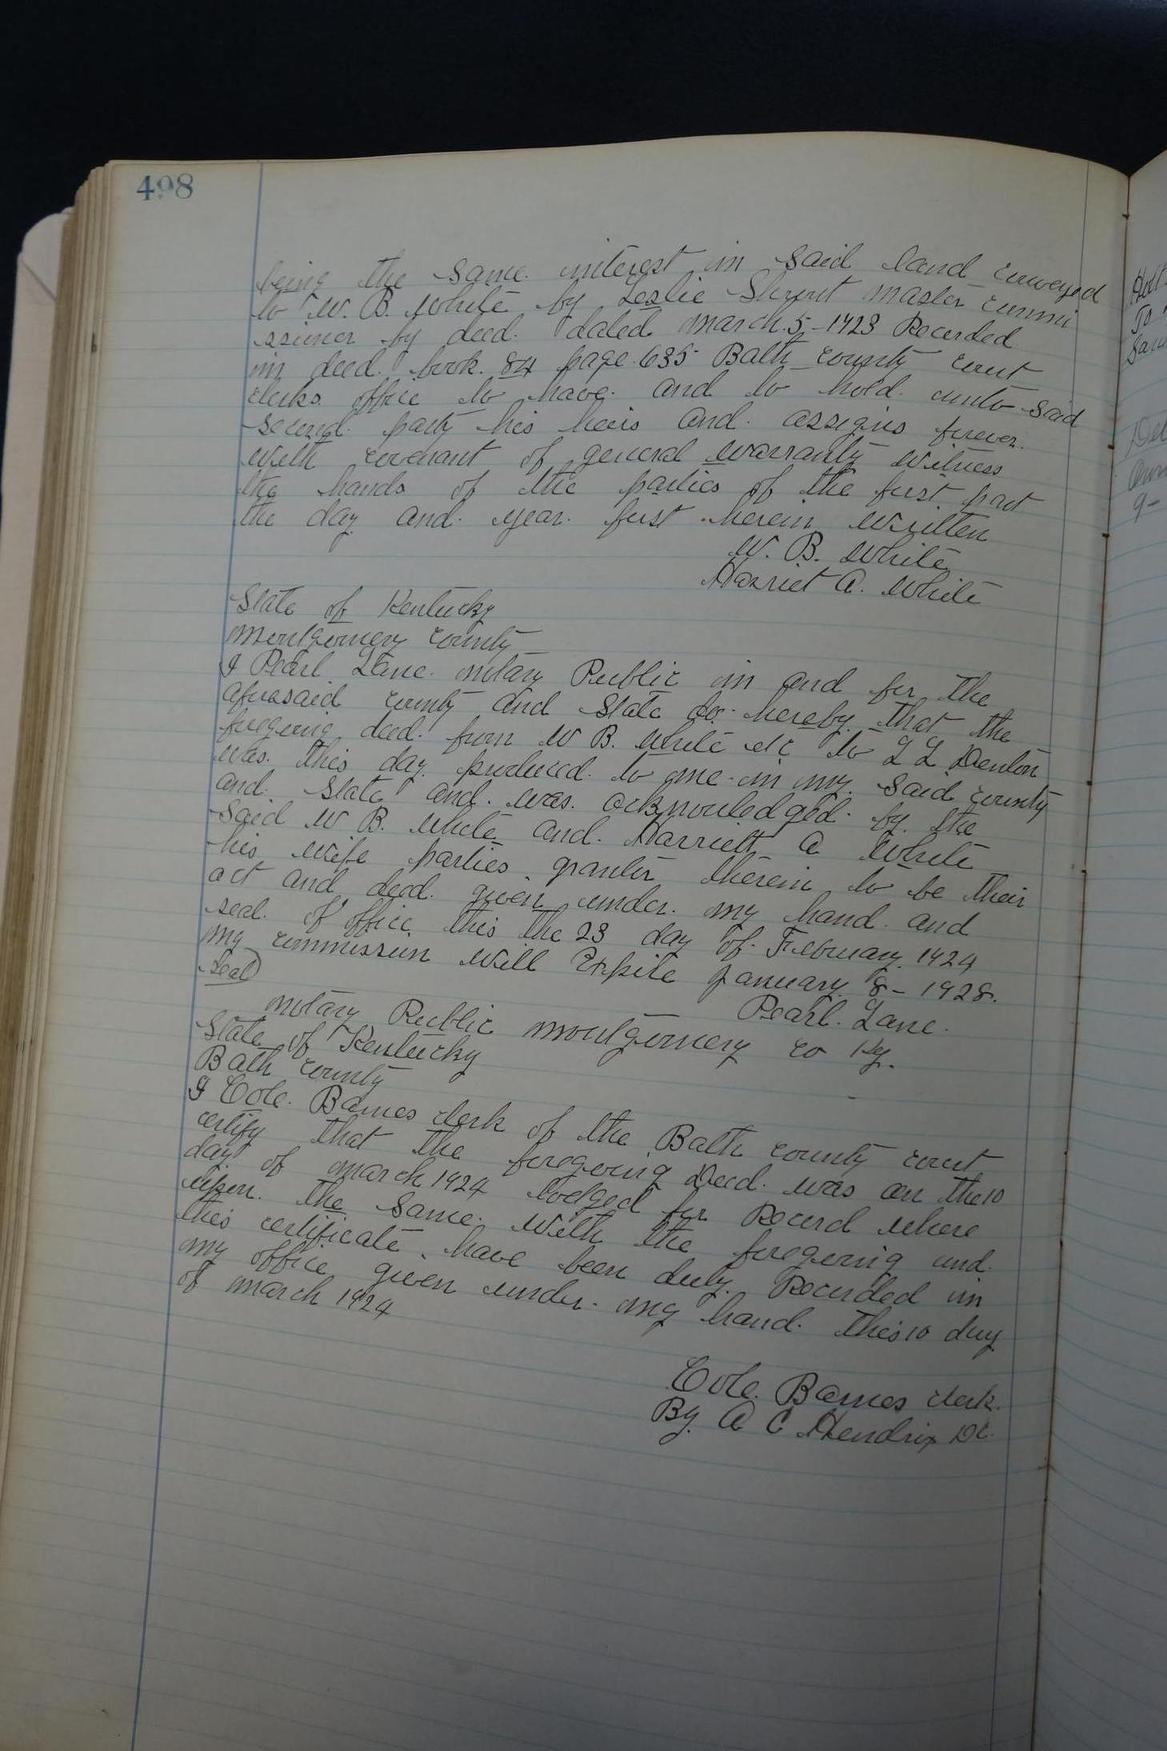 498
being the same interest in said land conveyed
to W. B. White by Leslie Shrout master commi
ssioner by deed dated march 5-1923 Recorded
in deed book 84 page 635 Bath county court
clerks office to have and to hold unto said
second party his heirs and assigns forever
with covenant of general warranty witness
the hands of the parties of the first part
the day and year first herein written
W. B. White
Harriet A. White
State of Kentucky
montgomery county
I Pearl Lane notary Public in and for the
aforesaid county and State do hereby that the
foregoing deed from W B. White etc to L L Denton
was this day produced to me in my said county
and State and was acknowledged by the
said W B. White and Harriett A White
his wife parties grantor therein to be their
act and deed given under my hand and
seal of office this the 23 day of February 1924
my commission will Expire January 8-1928.
Seal) Pearl. Lane.
notary Public montgomery co Ky.
State of Kentucky
Bath county
I Cole. Barnes clerk of the Bath county court
certify that the foregoing Deed was on the 10
day of march 1924 lodged for Record where
upon the same with the foregoing and
this certificate have been duly Recorded in
my office given under my hand this 10 day
of march 1924
Cole. Barnes clerk.
By A C Hendrix DC.